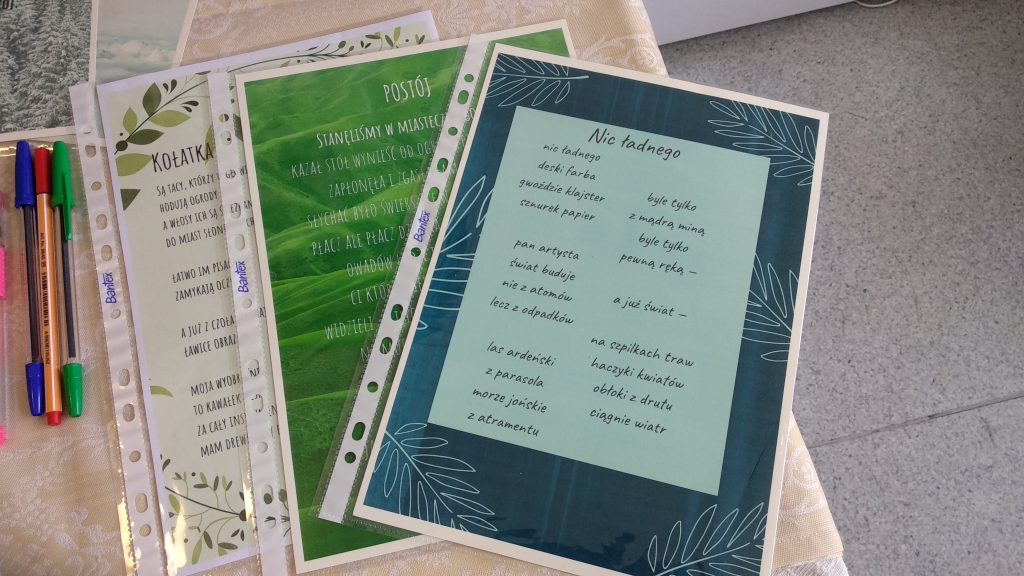 KOŁATKA
SĄ TACY, KTÓRZY
HODUJĄ OGRODY
A WŁOSY ICH SĄ
DO MIAST SŁONE
ŁATWO IM PISA
ZAMYKAJĄ OCZ
A JUŻ Z CZOŁA
ŁAWICE OBRAZ
MOJA WYOBR
TO KAWAŁEK
ZA CAŁY INST
MAM DREW
Bantex
POSTÓJ
STANĘLIŚMY W MIASTECZ
KAZAŁ STÓŁ WYNIEŚĆ DO OGR
ZAPŁONĘŁA I ZGAS
SŁYCHAĆ BYŁO ŚWIERS
PŁACZ ALE PŁACZ D
OWADÓW
CI KTÓR
WIDZIELI
Bantex
Nic ładnego
nic ładnego
deski farba
gwoździe klajster
sznurek papier
pan artysta
świat buduje
nie z atomów
lecz z odpadków
las ardeński
z parasola
morze jońskie
z atramentu
byle tylko
z mądrą miną
byle tylko
pewną ręką –
a już świat –
na szpilkach traw
haczyki kwiatów
obłoki z drutu
ciągnie wiatr
Bantex